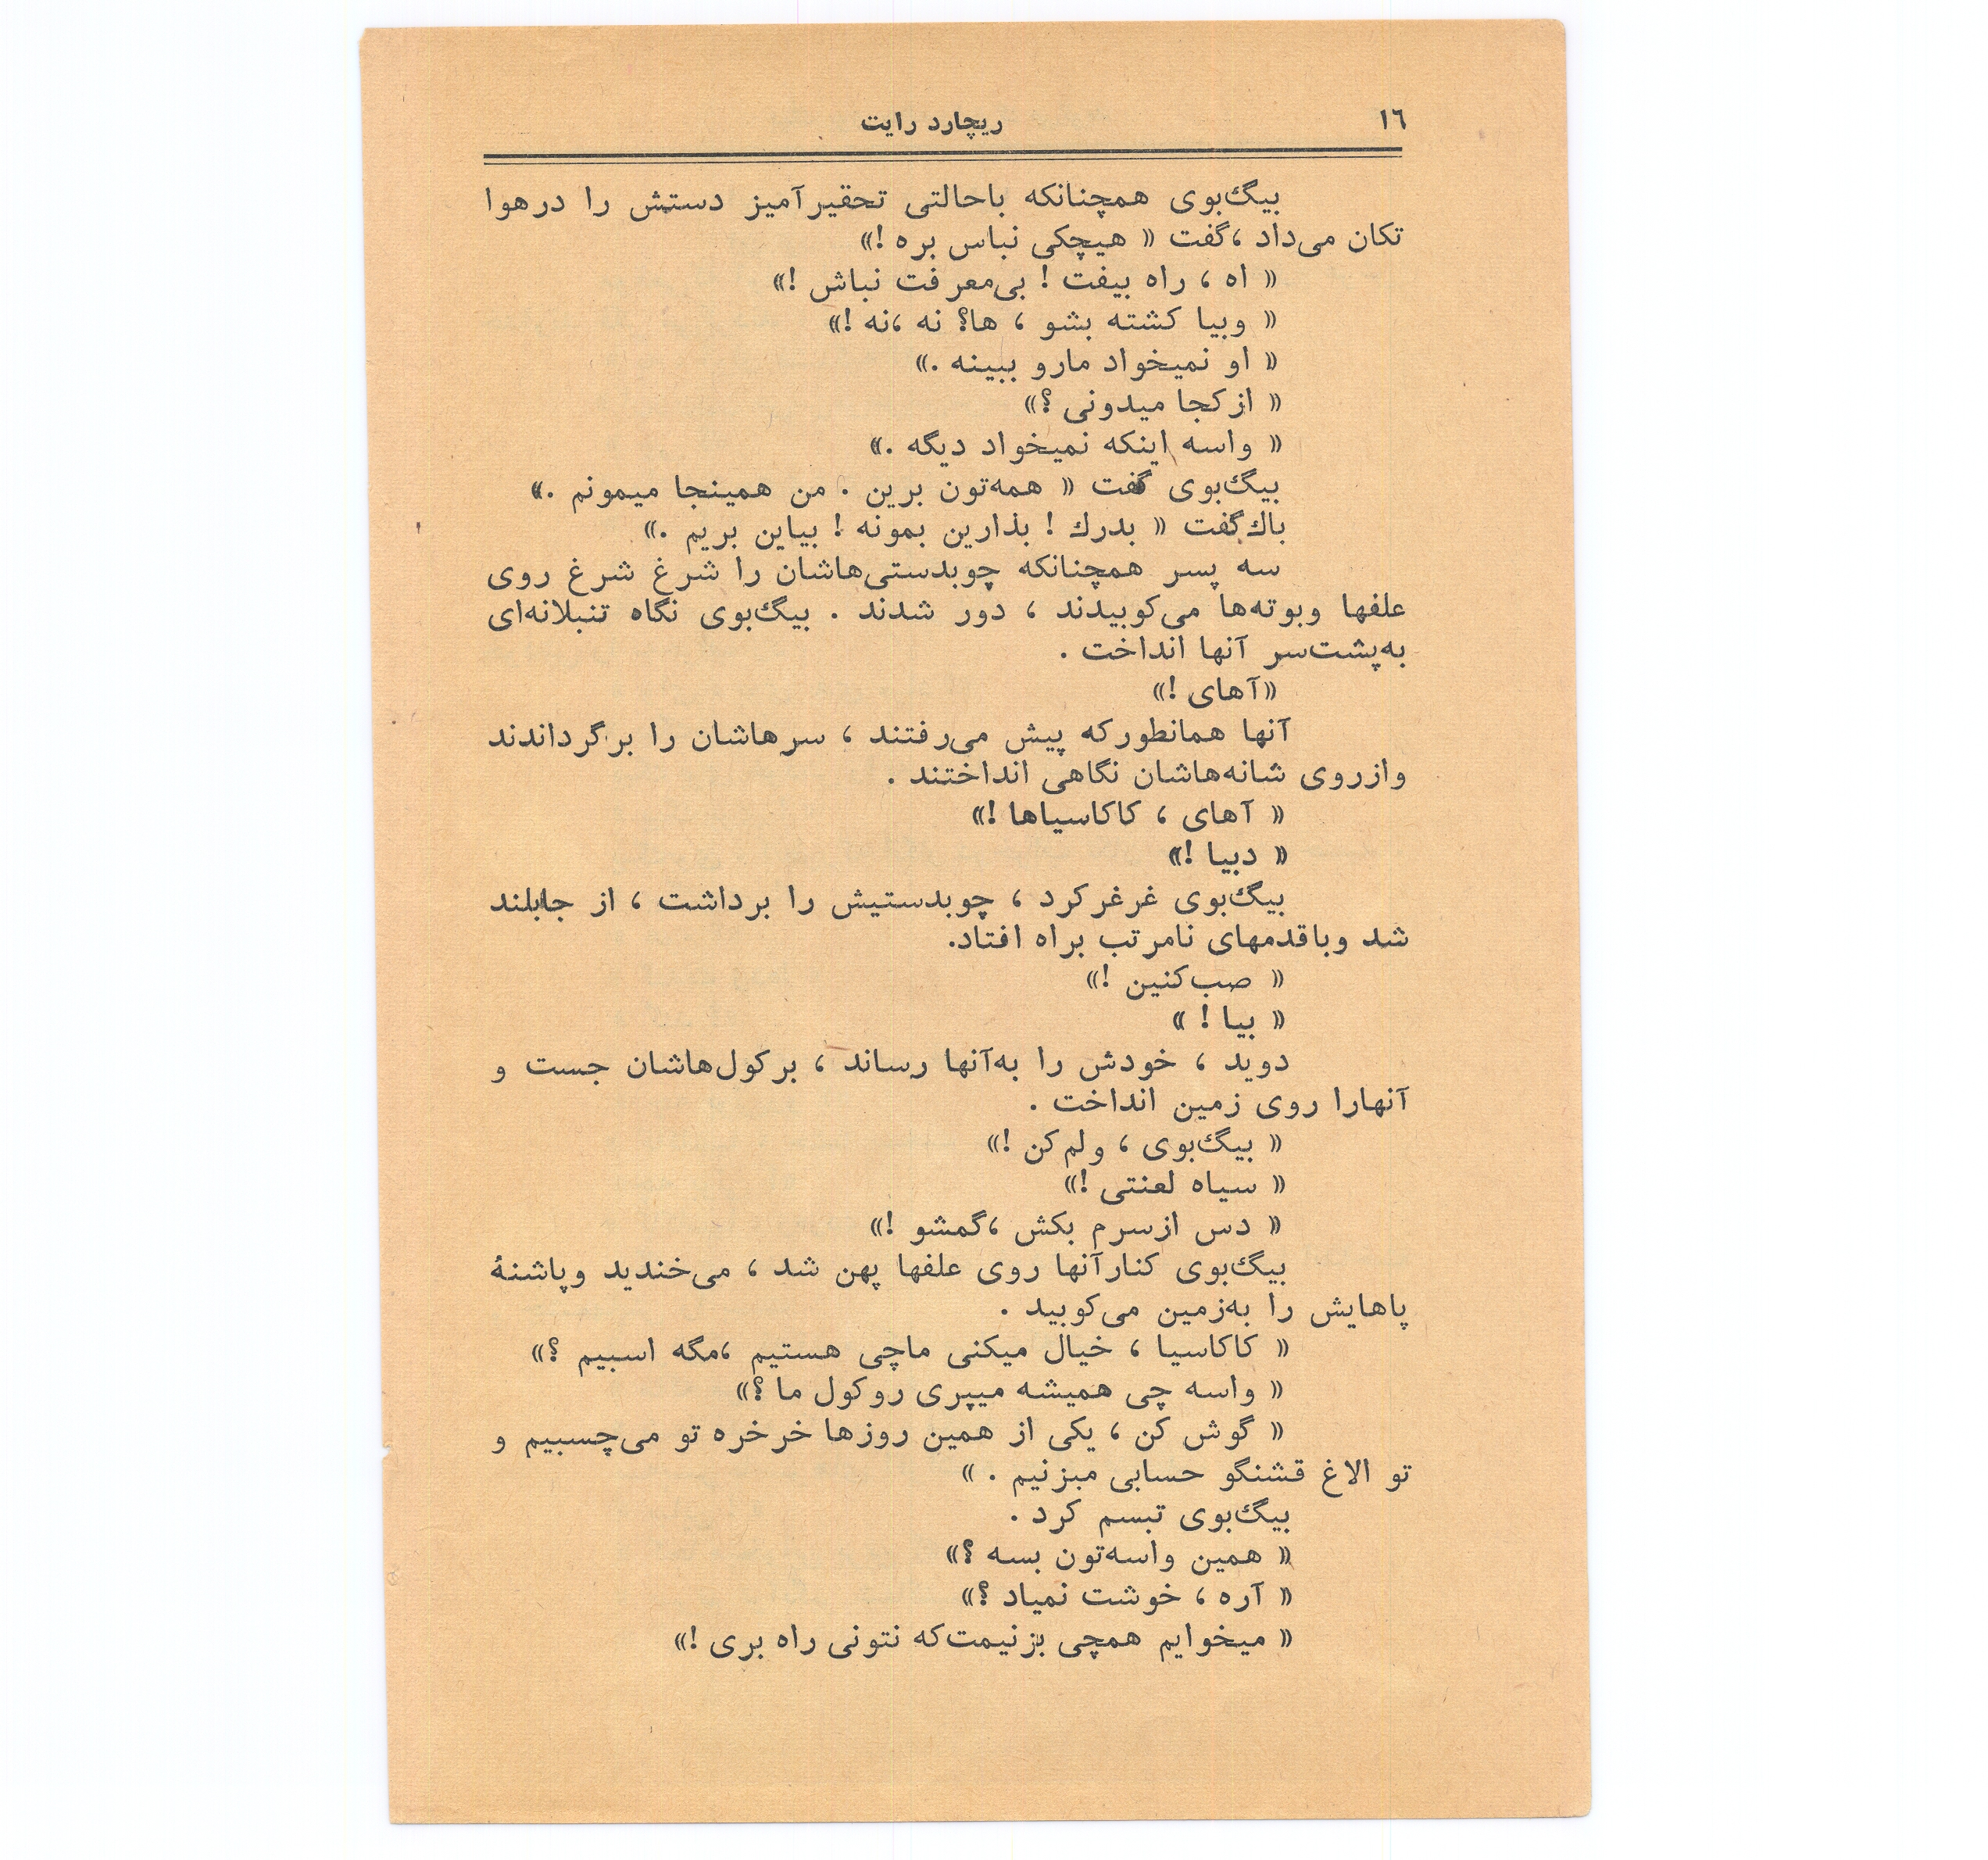 ١٦
ریچارد رایت
بیگ‌بوی همچنانکه باحالتی تحقیرآمیز دستش را درهوا
تکان می‌داد ،گفت « هیچکی نباس بره !»
« اه ، راه بیفت ! بی‌معرفت نباش !»
« وبیا کشته بشو ، ها؟ نه ،نه !»
« او نمیخواد مارو ببینه .»
« ازکجا میدونی ؟»
« واسه اینکه نمیخواد دیگه .»
بیگ‌بوی گفت « همه‌تون برین . من همینجا میمونم .»
باك‌گفت « بدرك ! بذارین بمونه ! بیاین بریم .»
سه پسر همچنانکه چوبدستی‌هاشان را شرغ شرغ روی
علفها وبوته‌ها می‌کوبیدند ، دور شدند . بیگ‌بوی نگاه تنبلانه‌ای
به‌پشت‌سر آنها انداخت .
«آهای !»
آنها همانطورکه پیش می‌رفتند ، سرهاشان را برگرداندند
وازروی شانه‌هاشان نگاهی انداختند .
« آهای ، کاکاسیاها !»
« دبیا !»
بیگ‌بوی غرغرکرد ، چوبدستیش را برداشت ، از جابلند
شد وباقدمهای نامرتب براه افتاد.
« صب‌کنین !»
« بیا ! »
دوید ، خودش را به‌آنها رساند ، برکول‌هاشان جست و
آنهارا روی زمین انداخت .
« بیگ‌بوی ، ولم‌کن !»
« سیاه لعنتی !»
« دس ازسرم بکش ،گمشو !»
بیگ‌بوی کنارآنها روی علفها پهن شد ، می‌خندید وپاشنهٔ
پاهایش را به‌زمین می‌کوبید .
« کاکاسیا ، خیال میکنی ماچی هستیم ،مگه اسبیم ؟»
« واسه چی همیشه میپری روکول ما ؟»
« گوش کن ، یکی از همین روزها خرخره تو می‌چسبیم و
تو الاغ قشنگو حسابی مبزنیم . »
بیگ‌بوی تبسم کرد .
« همین واسه‌تون بسه ؟»
« آره ، خوشت نمیاد ؟»
« میخوایم همچی بزنیمت‌که نتونی راه بری !»